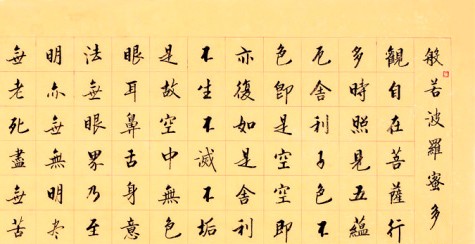 般若波羅蜜多
觀自在菩薩行
多時照見五蘊
厄舍利子色不
色即是空空即
亦復如是舍利
不生不滅不垢
是故空中無色
眼耳鼻舌身意
法無眼界乃至
明亦無無明尽
無老死盡無苦